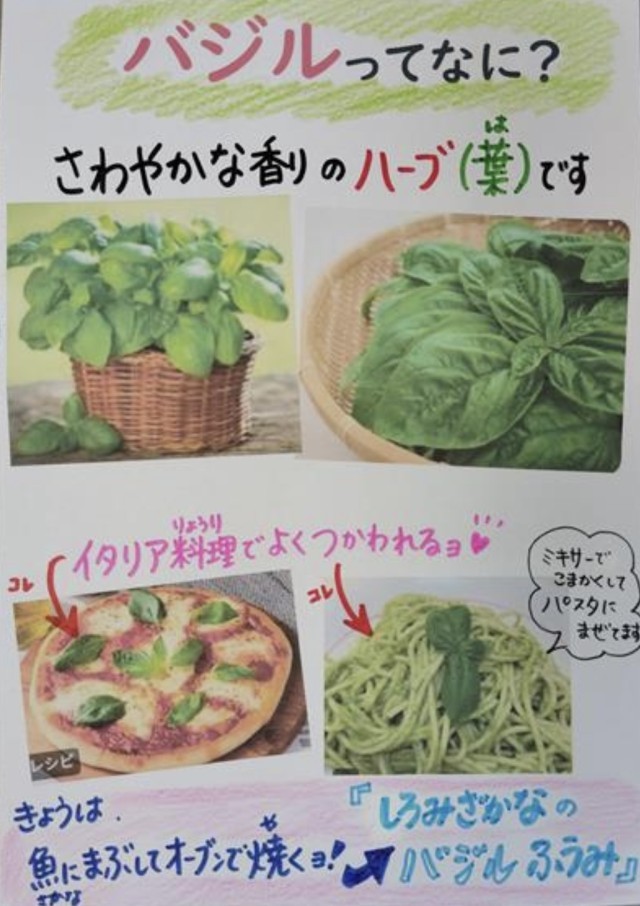 バジルってなに?
は
さわやかな香りのハーブ(葉)です
りょうり
イタリア料理でよくつかわれるョ
コレ
コレ
ミキサーで
こまかくして
パスタに
まぜてます
レシピ
きょうは.
や
魚にまぶしてオーブンで焼くョ!
さかな
『しろみざかなの
バジルふうみ』